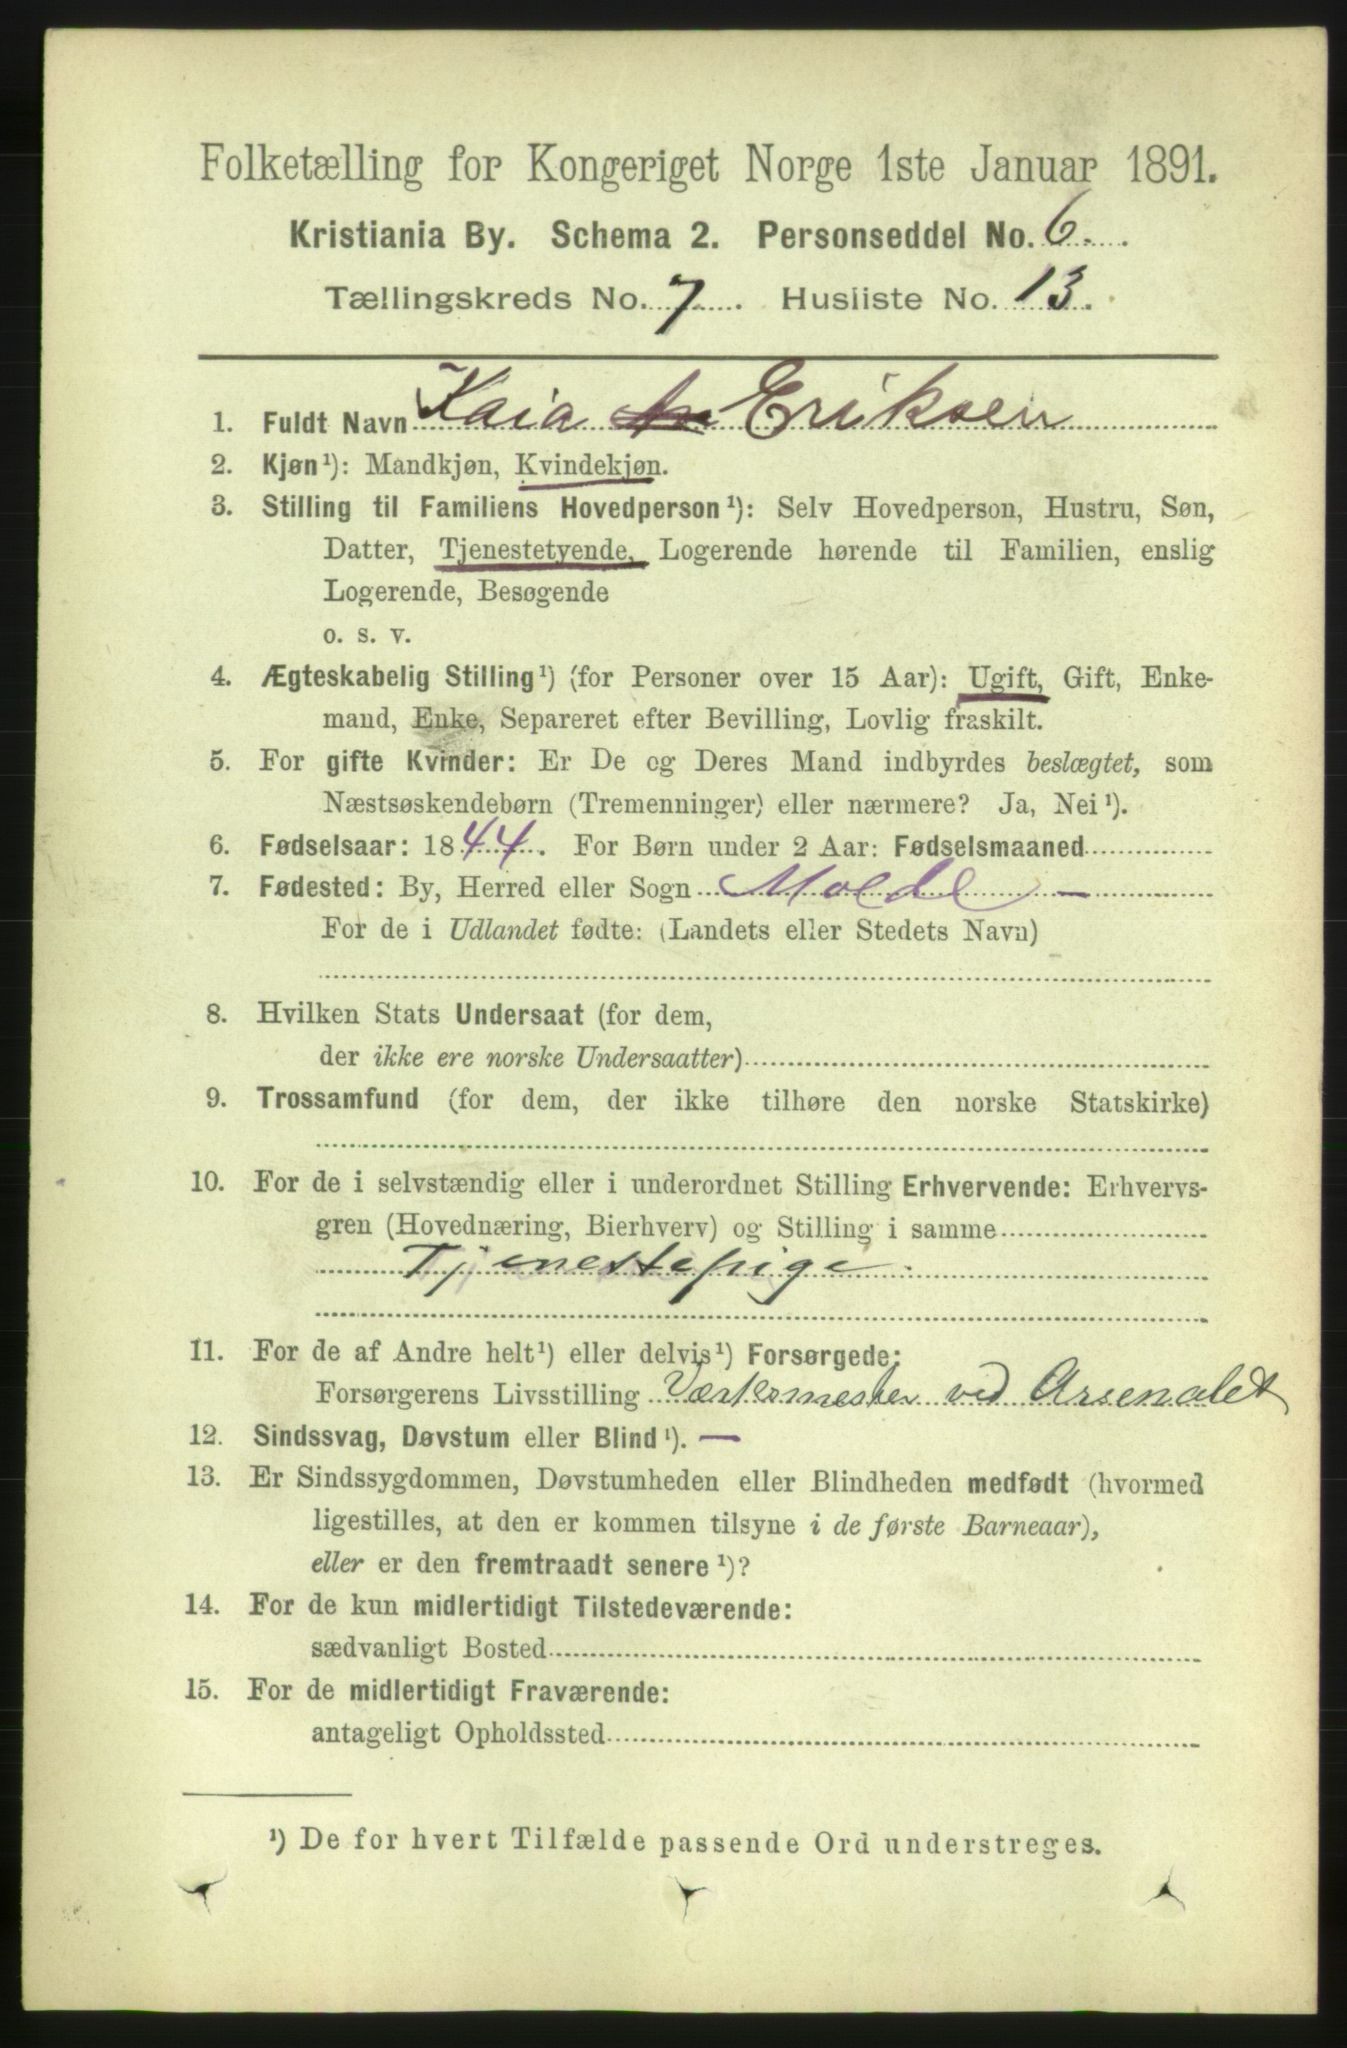 Folketælling for Kongeriget Norge 1ste Januar 1891.
Kristiania By. Schema 2. Personseddel No. 6.
Tællingskreds No. 7. Husliste No. 13.
1. Fuldt Navn Kaia Eriksen
2. Kjøn¹): Mandkjøn, Kvindekjøn.
3. Stilling til Familiens Hovedperson¹): Selv Hovedperson, Hustru, Søn,
Datter, Tjenestetyende, Logerende hørende til Familien, enslig
Logerende, Besøgende
o. s. v.
4. Ægteskabelig Stilling¹) (for Personer over 15 Aar): Ugift, Gift, Enke-
mand, Enke, Separeret efter Bevilling, Lovlig fraskilt.
5. For gifte Kvinder: Er De og Deres Mand indbyrdes beslægtet, som
Næstsøskendebørn (Tremenninger) eller nærmere? Ja, Nei¹).
6. Fødselsaar: 1844. For Børn under 2 Aar: Fødselsmaaned
7. Fødested: By, Herred eller Sogn Molde —
For de i Udlandet fødte: (Landets eller Stedets Navn)
8. Hvilken Stats Undersaat (for dem,
der ikke ere norske Undersaatter)
9. Trossamfund (for dem, der ikke tilhøre den norske Statskirke)
10. For de i selvstændig eller i underordnet Stilling Erhvervende: Erhvervs-
gren (Hovednæring, Bierhverv) og Stilling i samme
Tjenestepige.
11. For de af Andre helt¹) eller delvis¹) Forsørgede:
Forsørgerens Livsstilling Værkmester ved Arsenalet
12. Sindssvag, Døvstum eller Blind¹). —
13. Er Sindssygdommen, Døvstumheden eller Blindheden medfødt (hvormed
ligestilles, at den er kommen tilsyne i de første Barneaar),
eller er den fremtraadt senere¹)?
14. For de kun midlertidigt Tilstedeværende:
sædvanligt Bosted
15. For de midlertidigt Fraværende:
antageligt Opholdssted
¹) De for hvert Tilfælde passende Ord understreges.